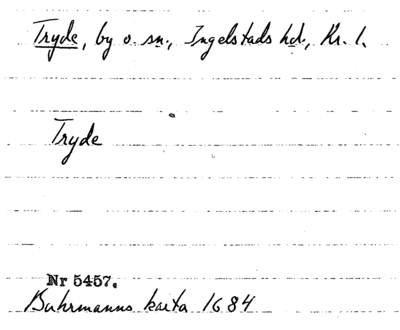 Tryde, by o. sn., Ingelstads hd., Kr. l.
Tryde
Nr 5457.
Buhrmanns karta 1684